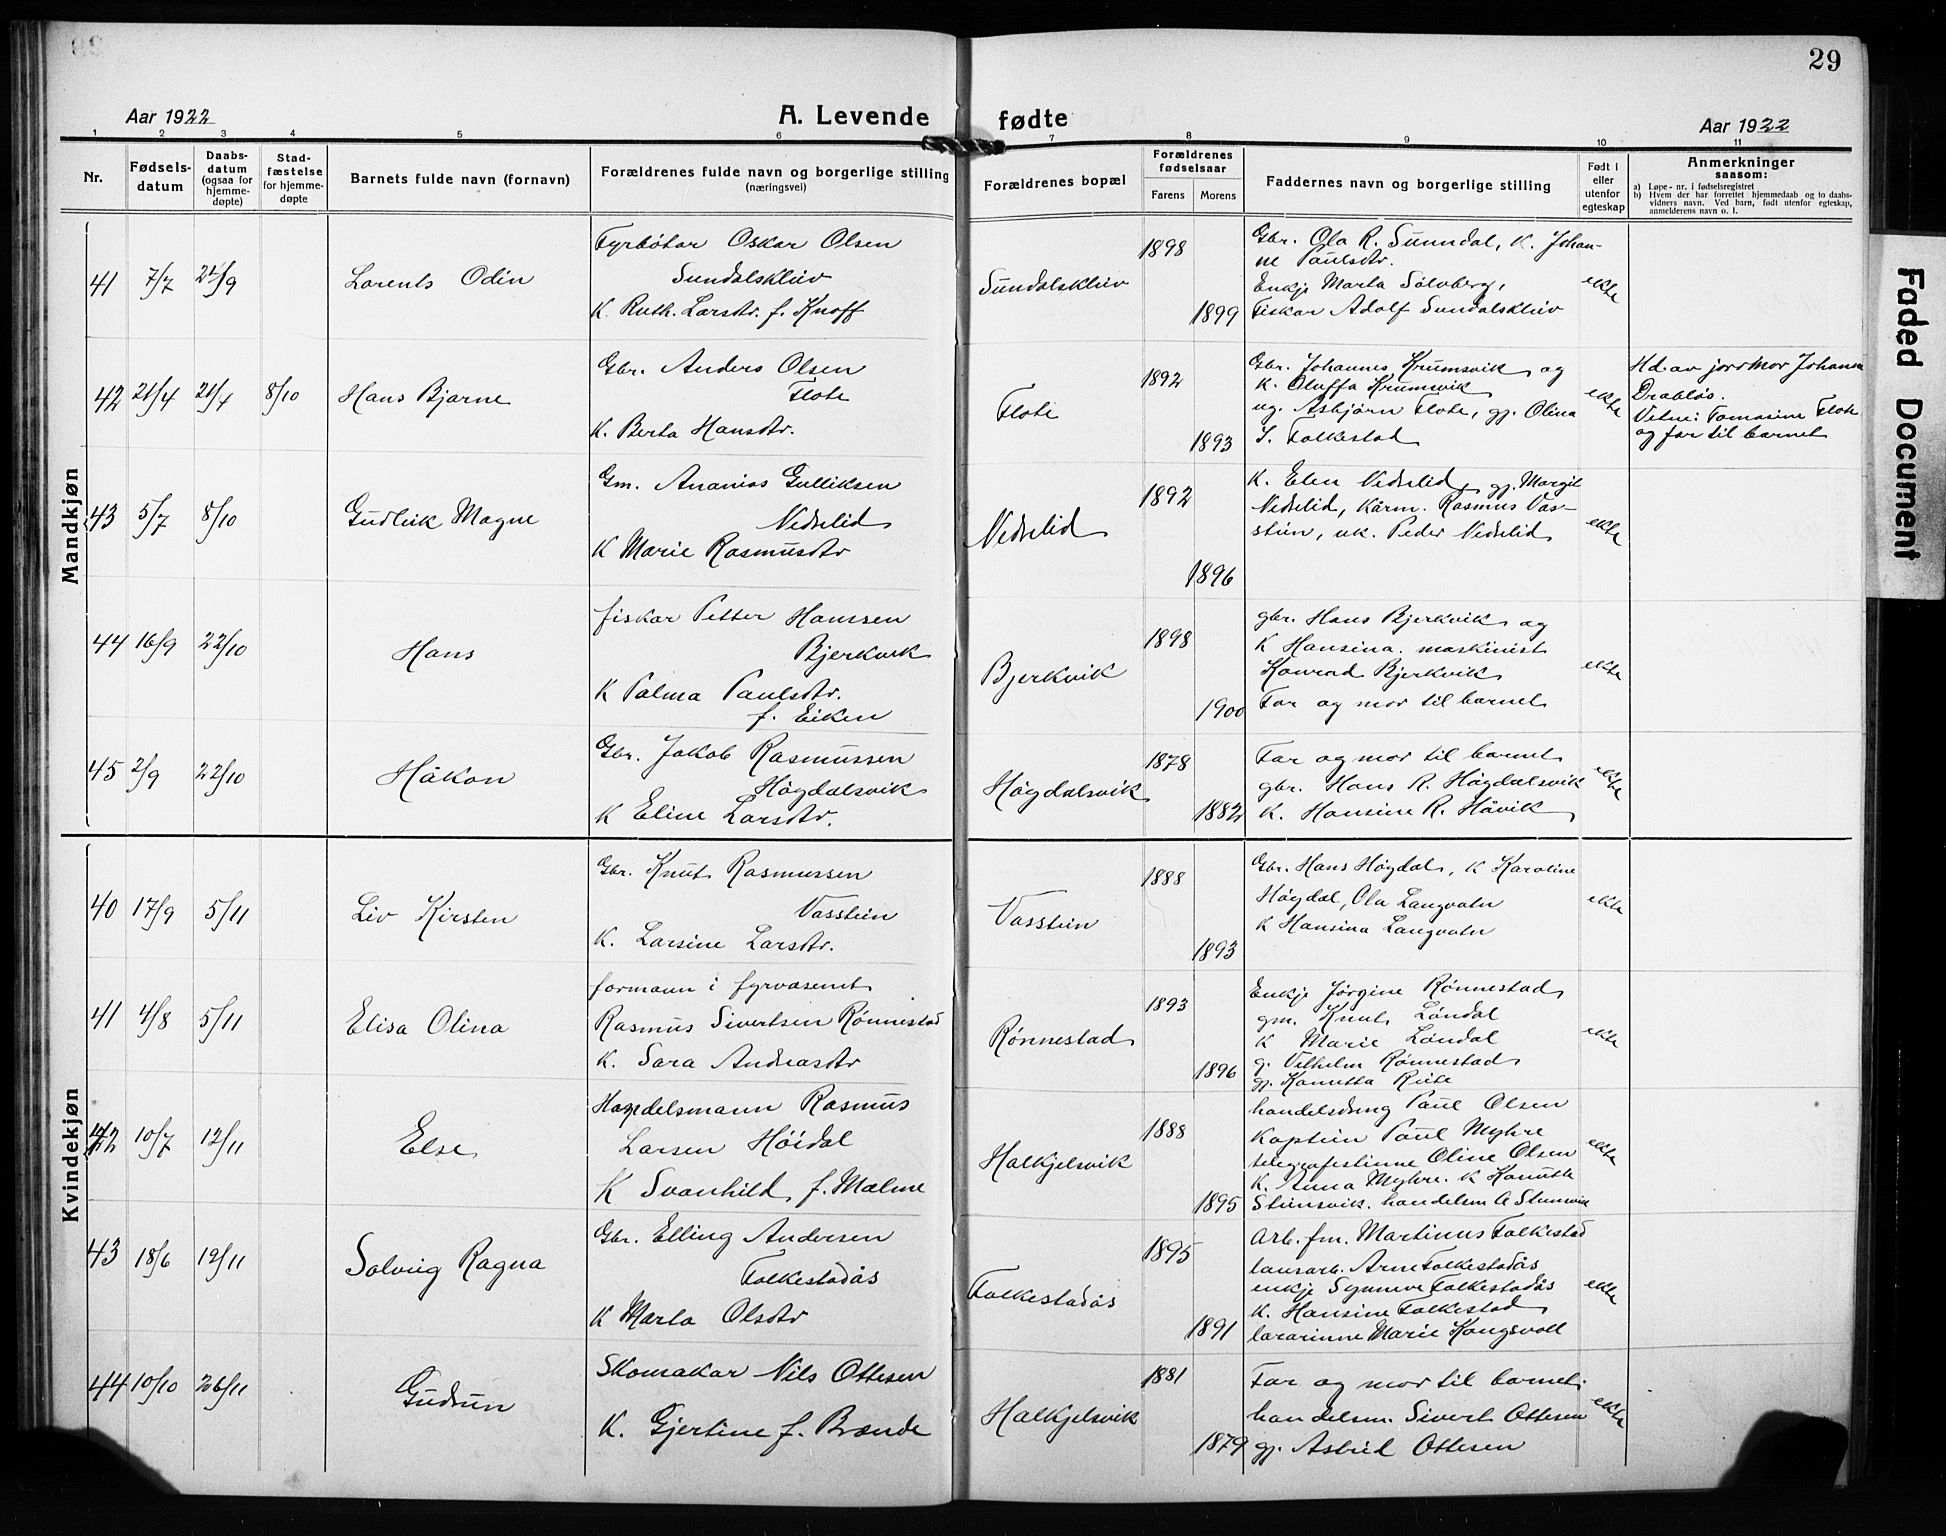 29
Aar 1922
A. Levende fødte
Aar 1922
1 2 3 4 5 6 7 8 9 10 11
Nr.
Fødsels-
datum
Daabs-
datum
(ogsaa for
hjemme-
døpte)
Stad-
fæstelse
for hjemme-
døpte
Barnets fulde navn (fornavn)
Forældrenes fulde navn og borgerlige stilling
(næringsvei)
Forældrenes bopæl
Forældrenes
fødselsaar
Farens Morens
Faddernes navn og borgerlige stilling
Født i
eller
utenfor
egteskap
Anmerkninger
saasom:
a) Løpe-nr. i fødselsregistret
b) Hvem der har forrettet hjemmedaab og to daabs-
vidners navn. Ved barn, født utenfor egteskap,
anmelderens navn o. l.
Mandkjøn
41 7/7 24/9 Lorents Odin
Fyrbötar Oskar Olsen
Sundalskleiv
K. Ruth. Larsdtr. f. Knoff
Sundalskleiv
1898
1899
Gbr. Ola R. Sunndal, K. Johan-
ne Paulsdtr.
Enkje Marta Sølvberg,
Fiskar Adolf Sundalskleiv
ekte
42 21/4 21/4 8/10 Hans Bjarne
Gbr. Anders Olsen
Flote
K. Berta Hansdtr.
Flote
1892
1893
Gbr. Johannes Krumsvik og
K. Oluffa Krumsvik
ug. Asbjørn Flote, gj. Olina
I. Folkestad
ekte
Hd. av jordmor Johanna
Drabløs.
Vitne: Tomasine Flote
og far til barnet
43 5/7 8/10 Gudleik Magne
Gm. Ananias Gulliksen
Nedrelid
K Marie Rasmusdtr
Nedrelid
1892
1896
K. Elen Nedrelid, gj. Margit
Nedrelid, kårm. Rasmus Vas-
stein, uk. Peder Nedrelid
ekte
44 16/9 22/10 Hans
fiskar Petter Hanssen
Bjerkvik
K Palma Paulsdtr.
f. Eiken
Bjerkvik
1898
1900
gbr. Hans Bjerkvik og
K Hansina. maskinist
Konrad Bjerkvik
Far og mor til barnet
ekte
45 2/9 22/10 Håkon
Gbr. Jakob Rasmussen
Høgdalsvik
K Eline Larsdtr.
Høgdalsvik
1878
1882
Far og mor til barnet
gbr. Hans R. Høgdalsvik
K. Hansine R. Håvik
ekte
Kvindekjøn
40 17/9 5/11 Liv Kirsten
Gbr. Knut Rasmussen
Vasstein
K. Larsine Larsdtr.
Vasstein
1888
1893
Gbr. Hans Høgdal, K Karoline
Høgdal, Ola Langvatn
K Hansina Langvatn
ekte
41 4/8 5/11 Elisa Olina
formann i fyrvæsenet
Rasmus Sivertsen Rønnestad
K. Sara Andreasdtr
Rønnestad
1893
1896
Enkje Jørgine Rønnestad
gm. Knut Løndal
K Marie Løndal
g. Vilhelm Rønnestad
gj. Kanutta Reite
ekte
42 10/7 12/11 Else
Handelsmann Rasmus
Larsen Höidal
K Svanhild f. Malme
Halkjelsvik
1888
1895
handelsdrng Paul Olsen
kaptein Paul Myhre
telegrafistinne Oline Olsen
K. Anna Myhre. K Kanutte
Steinsvik. handelsm A Steinsvik
ekte
43 18/6 12/11 Solveig Ragna
Gbr. Elling Andersen
Folkestadås
K Marta Olsdtr
Folkestadås
1895
1891
Arb. fm. Martinus Folkestad
lausarb. Arne Folkestadås
enkje Synneve Folkestadås
K. Hansine Folkestad
lærarinne Marie Kongsvoll
ekte
44 10/10 26/11 Gudrun
Skomakar Nils Ottesen
K. Gjertine f. Brænde
Halkjelsvik
1881
1879
Far og mor til barnet.
handelsm. Sivert Ottesen
gj. Astrid Ottesen
ekte
Faded Document